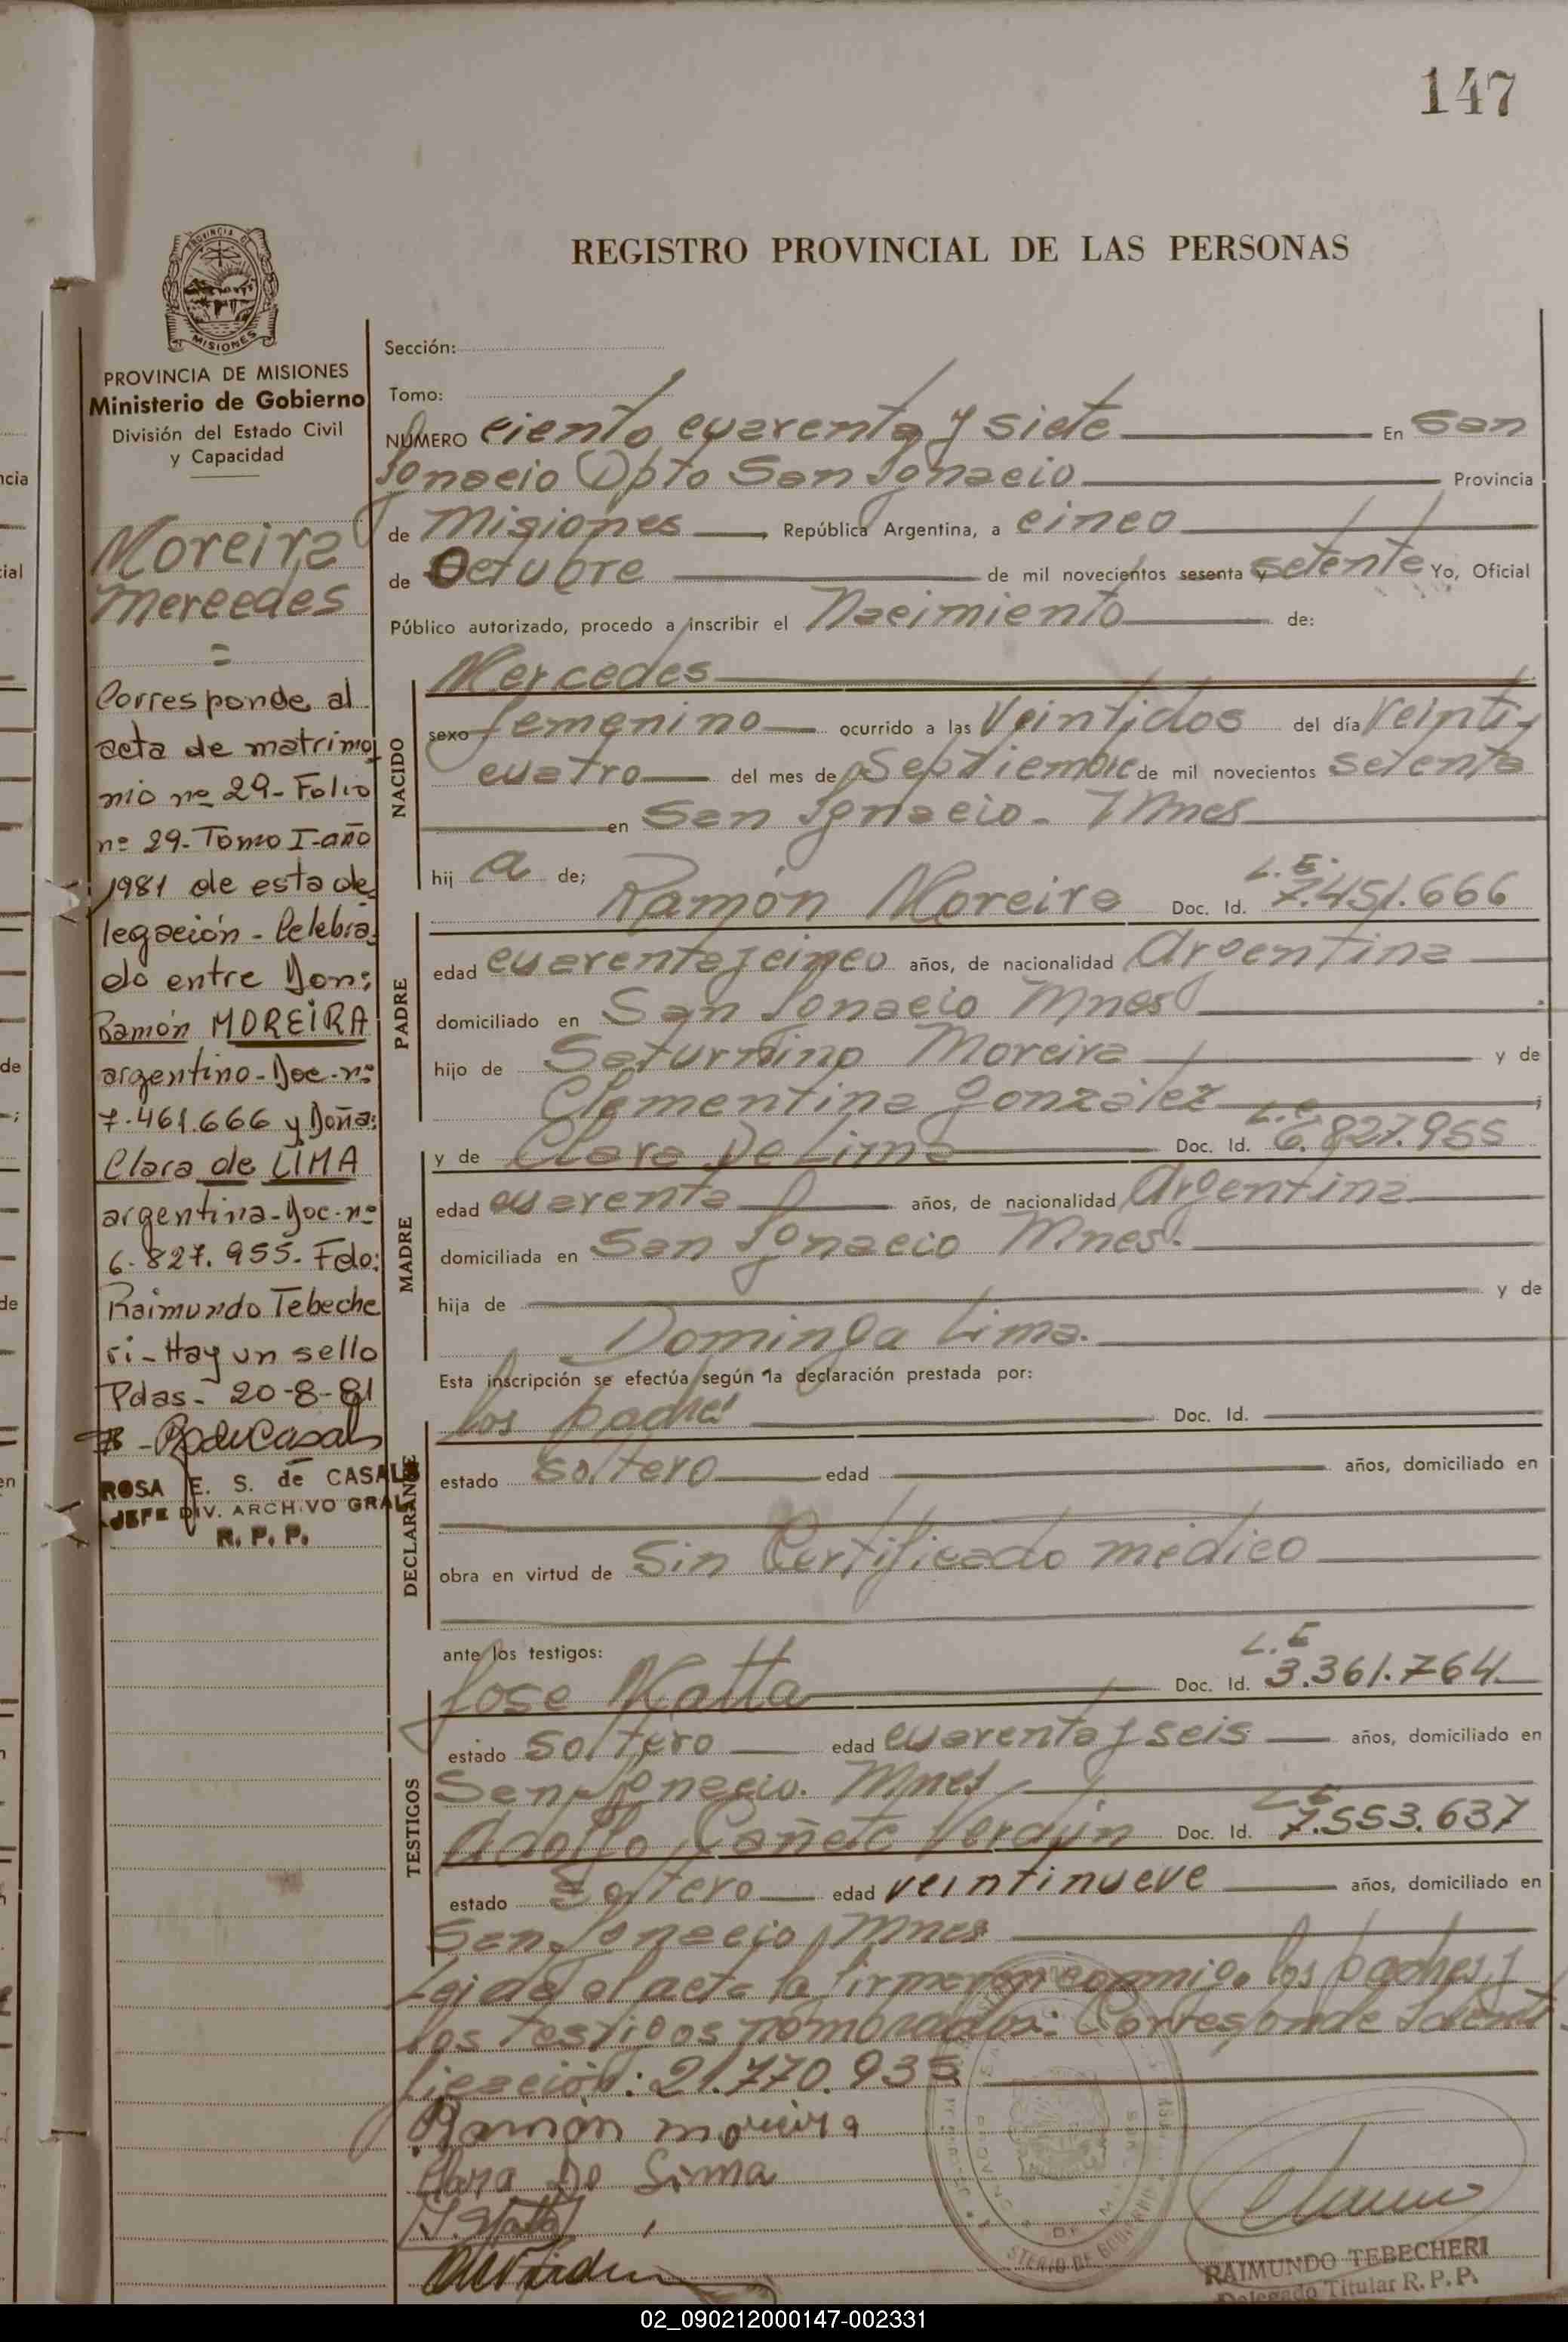 147
REGISTRO PROVINCIAL DE LAS PERSONAS
PROVINCIA DE
MISIONES
PROVINCIA DE MISIONES
Ministerio de Gobierno
División del Estado Civil
y Capacidad
Moreira
Mercedes
=
Corresponde al
acta de matrimo
nio nº 29- Folio
nº 29- Tomo I- año
1981 de esta de
legación - Celebra
do entre Don:
Ramón MOREIRA
argentino - Doc - nº
7.461.666 y Doña:
Clara de LIMA
argentina - Doc - nº
6.827.955. Fdo:
Raimundo Tebeche
ri - Hay un sello
Pdas - 20-8-81
R de Casals
ROSA E. S. de CASALS
JEFE DIV. ARCHIVO GRAL
R. P. P.
Sección:
Tomo:
NÚMERO ciento cuarenta y siete En San
Ignacio Dpto San Ignacio Provincia
de Misiones República Argentina, a cinco
de Octubre de mil novecientos sesenta y setenta Yo, Oficial
Público autorizado, procedo a inscribir el Nacimiento de:
Mercedes
NACIDO
sexo femenino ocurrido a las Veintidos del día veinti
cuatro del mes de Septiembre de mil novecientos setenta
en San Ignacio - Mnes
hij a de;
PADRE
Ramón Moreira Doc. Id. L.E. 7.451.666
edad cuarenta y cinco años, de nacionalidad Argentina
domiciliado en San Ignacio Mnes
hijo de Saturnino Moreira y de
Clementina González ;
MADRE
y de Clara De Lima Doc. Id. L.C. 6.827.955
edad cuarenta años, de nacionalidad Argentina
domiciliada en San Ignacio Mnes.
hija de y de
Dominga Lima.
Esta inscripción se efectúa según la declaración prestada por:
DECLARANTE
los padres Doc. Id.
estado soltero edad años, domiciliado en
obra en virtud de Sin Certificado médico
ante los testigos:
TESTIGOS
Jose Matta Doc. Id. L.E 3.361.764
estado soltero edad cuarenta y seis años, domiciliado en
San Ignacio. Mnes
Adolfo Cañete Verdún Doc. Id. L.E 7.553.637
estado Soltero edad veintinueve años, domiciliado en
San Ignacio Mnes
Leida el acta la firmaron conmigo los padres y
los testigos nombrados: Corresponde Identi
ficación: 21.770.935
Ramón moreira
Clara De Lima
J. Matta
RAIMUNDO TEBECHERI
Delegado Titular R. P. P.
02_090212000147-002331